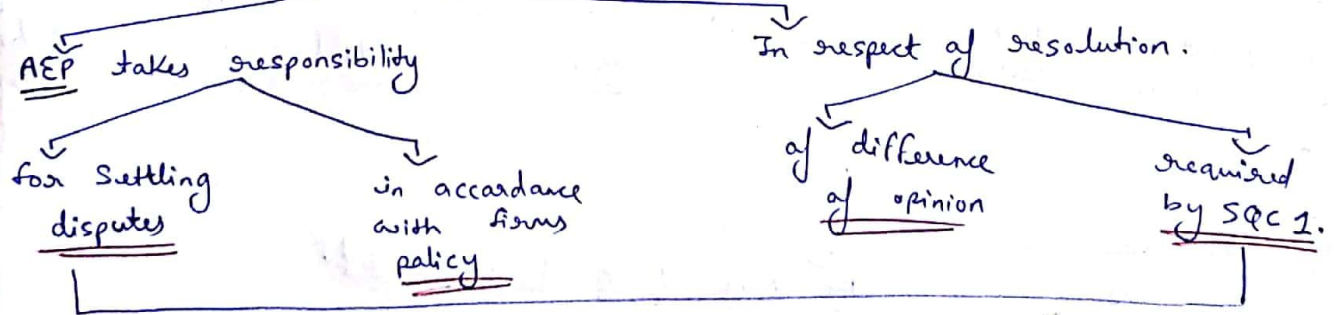 AEP takes responsibility
In respect of resolution.
for Settling
disputes
in accordance
with firms
policy
of difference
of opinion
required
by SQC 1.